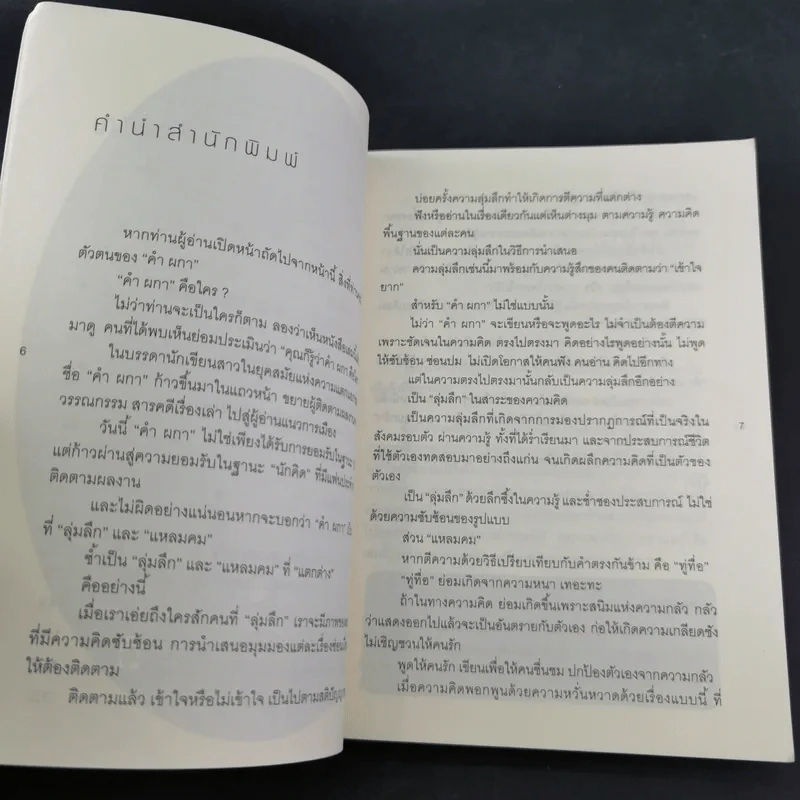 คำนำสำนักพิมพ์
หากท่านผู้อ่านเปิดหน้าถัดไปจากหน้านี้ สิ่งที่
ตัวตนของ "คำ ผกา"
"คำ ผกา" คือใคร ?
ไม่ว่าท่านจะเป็นใครก็ตาม ลองว่าเห็นหนังสือเล่มนี้
มาดู คนที่ได้พบเห็นย่อมประเมินว่า "คุณก็รู้ว่าคำ ผกา
ในบรรดานักเขียนสาวในยุคสมัยแห่งความแตก
ชื่อ "คำ ผกา" ก้าวขึ้นมาในแถวหน้า ขยายผู้ติดตามผลงาน
วรรณกรรม สารคดีเรื่องเล่า ไปสู่ผู้อ่านแนวการเมือง
วันนี้ "คำ ผกา" ไม่ใช่เพียงได้รับการยอมรับในฐานะ
แต่ก้าวผ่านสู่ความยอมรับในฐานะ "นักคิด" ที่มีแฟน
ติดตามผลงาน
และไม่ผิดอย่างแน่นอนหากจะบอกว่า "คำ ผกา"
ที่ "ลุ่มลึก" และ "แหลมคม"
ซ้ำเป็น "ลุ่มลึก" และ "แหลมคม" ที่ "แตกต่าง"
คืออย่างนี้
เมื่อเราเอ่ยถึงใครสักคนที่ "ลุ่มลึก" เราจะมีภาพ
ที่มีความคิดซับซ้อน การนำเสนอมุมมองแต่ละเรื่อง
ให้ต้องติดตาม
ติดตามแล้ว เข้าใจหรือไม่เข้าใจ เป็นไปตามสติปัญญา
6
บ่อยครั้งความลุ่มลึกทำให้เกิดการตีความที่แตกต่าง
ฟังหรืออ่านในเรื่องเดียวกันแต่เห็นต่างมุม ตามความรู้ ความคิด
พื้นฐานของแต่ละคน
นั่นเป็นความลุ่มลึกในวิธีการนำเสนอ
ความลุ่มลึกเช่นนี้มาพร้อมกับความรู้สึกของคนติดตามว่า "เข้าใจ
ยาก"
สำหรับ "คำ ผกา" ไม่ใช่แบบนั้น
ไม่ว่า "คำ ผกา" จะเขียนหรือจะพูดอะไร ไม่จำเป็นต้องตีความ
เพราะชัดเจนในความคิด ตรงไปตรงมา คิดอย่างไรพูดอย่างนั้น ไม่พูด
ให้ซับซ้อน ซ่อนปม ไม่เปิดโอกาสให้คนฟัง คนอ่าน คิดไปอีกทาง
แต่ในความตรงไปตรงมานั้นกลับเป็นความลุ่มลึกอีกอย่าง
เป็น "ลุ่มลึก" ในสาระของความคิด
เป็นความลุ่มลึกที่เกิดจากการมองปรากฏการณ์ที่เป็นจริงใน
สังคมรอบตัว ผ่านความรู้ ทั้งที่ได้ร่ำเรียนมา และจากประสบการณ์ชีวิต
ที่ใช้ตัวเองทดสอบมาอย่างถึงแก่น จนเกิดผลึกความคิดที่เป็นตัวของ
ตัวเอง
เป็น "ลุ่มลึก" ด้วยลึกซึ้งในความรู้ และช่ำชองประสบการณ์ ไม่ใช่
ด้วยความซับซ้อนของรูปแบบ
ส่วน "แหลมคม"
หากตีความด้วยวิธีเปรียบเทียบกับคำตรงกันข้าม คือ "ทู่ทื่อ"
"ทู่ทื่อ" ย่อมเกิดจากความหนา เทอะทะ
ถ้าในทางความคิด ย่อมเกิดขึ้นเพราะสนิมแห่งความกลัว กลัว
ว่าแสดงออกไปแล้วจะเป็นอันตรายกับตัวเอง ก่อให้เกิดความเกลียดชัง
ไม่เชิญชวนให้คนรัก
พูดให้คนรัก เขียนเพื่อให้คนชื่นชม ปกป้องตัวเองจากความกลัว
เมื่อความคิดพอกพูนด้วยความหวั่นหวาดด้วยเรื่องแบบนี้ ที่
7